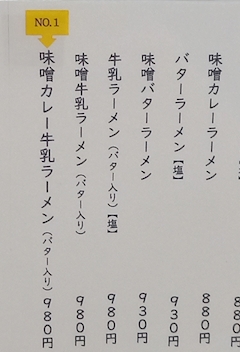 味噌カレーラーメン 880円
バターラーメン【塩】 930円
味噌バターラーメン 930円
牛乳ラーメン(バター入り)【塩】 980円
味噌牛乳ラーメン(バター入り) 980円
NO.1
味噌カレー牛乳ラーメン(バター入り) 980円